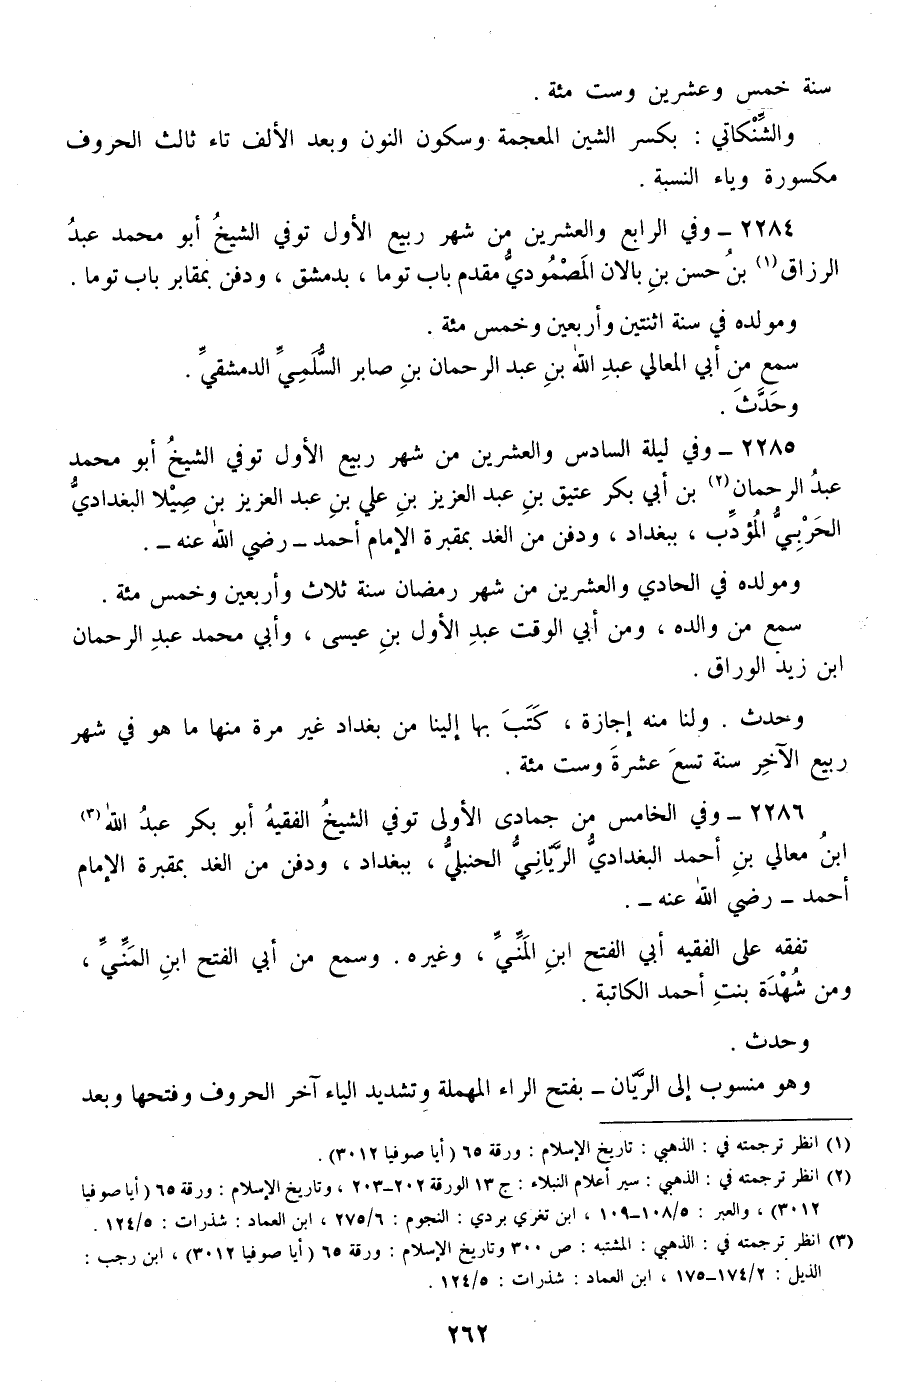 سنة خمس وعشرين وست مئة .
والشِّنْكاتي : بكسر الشين المعجمة وسكون النون وبعد الألف تاء ثالث الحروف
مكسورة وياء النسبة .
٢٢٨٤ ــ وفي الرابع والعشرين من شهر ربيع الأول توفي الشيخُ أبو محمد عبدُ
الرزاق(١) بنُ حسن بنِ بالان المَصْمُوديُّ مقدم باب توما ، بدمشق ، ودفن بمقابر باب توما .
ومولده في سنة اثنتين وأربعين وخمس مئة .
سمع من أبي المعالي عبدِ اللهِ بنِ عبد الرحمان بنِ صابر السُّلَمِيِّ الدمشقيِّ .
وحَدَّثَ .
٢٢٨٥ ــ وفي ليلة السادس والعشرين من شهر ربيع الأول توفي الشيخُ أبو محمد
عبدُ الرحمان(٢) بن أبي بكر عتيق بنِ عبد العزيز بنِ علي بنِ عبد العزيز بن صِيْلا البغداديُّ
الحَرْبِيُّ المُؤدِّب ، ببغداد ، ودفن من الغد بمقبرة الإمام أحمد ــ رضي الله عنه ــ .
ومولده في الحادي والعشرين من شهر رمضان سنة ثلاث وأربعين وخمس مئة .
سمع من والده ، ومن أبي الوقت عبدِ الأول بنِ عيسى ، وأبي محمد عبدِ الرحمان
ابن زيد الوراق .
وحدث . ولنا منه إجازة ، كَتَبَ بها إلينا من بغداد غير مرة منها ما هو في شهر
ربيع الآخِر سنة تسعَ عشرةَ وست مئة .
٢٢٨٦ ــ وفي الخامس من جمادى الأولى توفي الشيخُ الفقيهُ أبو بكر عبدُ الله(٣)
ابنُ معالي بنِ أحمد البغداديُّ الرَّيّانِيُّ الحنبليُّ ، ببغداد ، ودفن من الغد بمقبرة الإمام
أحمد ــ رضي الله عنه ــ .
تفقه على الفقيه أبي الفتح ابنِ المَنِّيِّ ، وغيره . وسمع من أبي الفتح ابنِ المَنِّيِّ ،
ومن شُهْدَة بنتِ أحمد الكاتبة .
وحدث .
وهو منسوب إلى الرَّيّان ــ بفتح الراء المهملة وتشديد الياء آخر الحروف وفتحها وبعد
(١) انظر ترجمته في : الذهبي : تاريخ الإسلام : ورقة ٦٥ (أيا صوفيا ٣٠١٢) .
(٢) انظر ترجمته في : الذهبي : سير أعلام النبلاء : ج ١٣ الورقة ٢٠٢ــ٢٠٣ ، وتاريخ الإسلام : ورقة ٦٥ (أيا صوفيا
٣٠١٢) ، والعبر : ١٠٨/٥ــ١٠٩ ، ابن تغري بردي : النجوم : ٢٧٥/٦ ، ابن العماد : شذرات : ١٢٤/٥ .
(٣) انظر ترجمته في : الذهبي : المشتبه : ص ٣٠٠ وتاريخ الإسلام : ورقة ٦٥ (أيا صوفيا ٣٠١٢) ، ابن رجب :
الذيل : ١٧٤/٢ــ١٧٥ ، ابن العماد : شذرات : ١٢٤/٥ .
٢٦٢